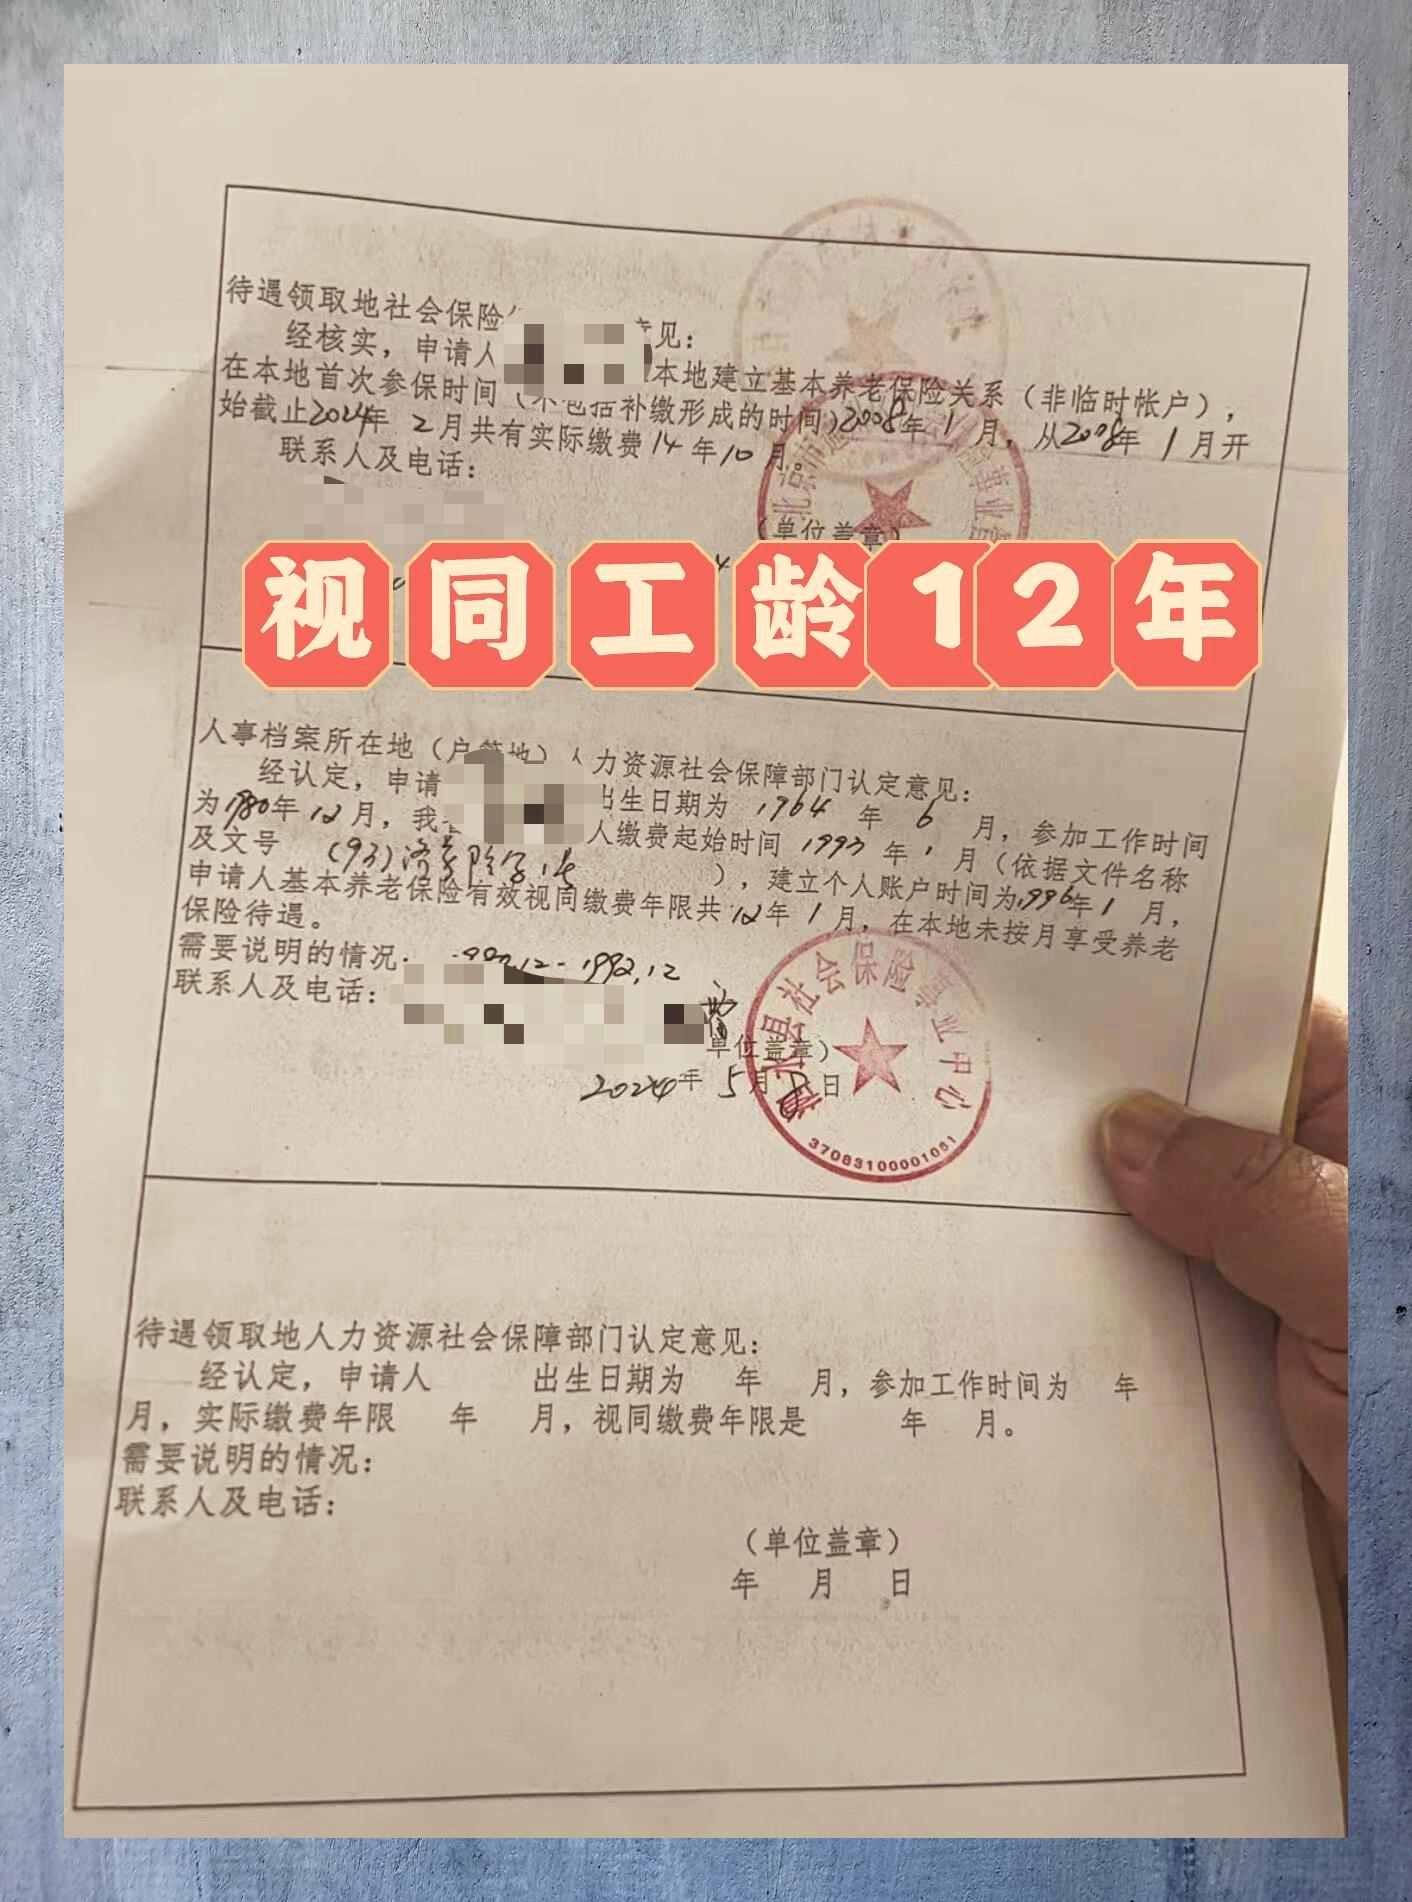 待遇领取地社会保险 意见：
经核实，申请人 本地建立基本养老保险关系（非临时帐户），
在本地首次参保时间（不包括补缴形成的时间）2008年1月，从2008年1月开
始截止2024年2月共有实际缴费14年10月。
联系人及电话：
（单位盖章）
北京市
视同工龄12年
人事档案所在地（户籍地）人力资源社会保障部门认定意见：
经认定，申请 出生日期为1964年6月，参加工作时间
为1980年12月，我 人缴费起始时间1993年1月（依据文件名称
及文号（93） ），建立个人账户时间为1996年1月，
申请人基本养老保险有效视同缴费年限共12年1月，在本地未按月享受养老
保险待遇。
需要说明的情况： 12-1992.12
联系人及电话：
单位盖章）
2024年5月8日
水县社会保险事业中心
37083100001051
待遇领取地人力资源社会保障部门认定意见：
经认定，申请人 出生日期为 年 月，参加工作时间为 年
月，实际缴费年限 年 月，视同缴费年限是 年 月。
需要说明的情况：
联系人及电话：
（单位盖章）
年 月 日